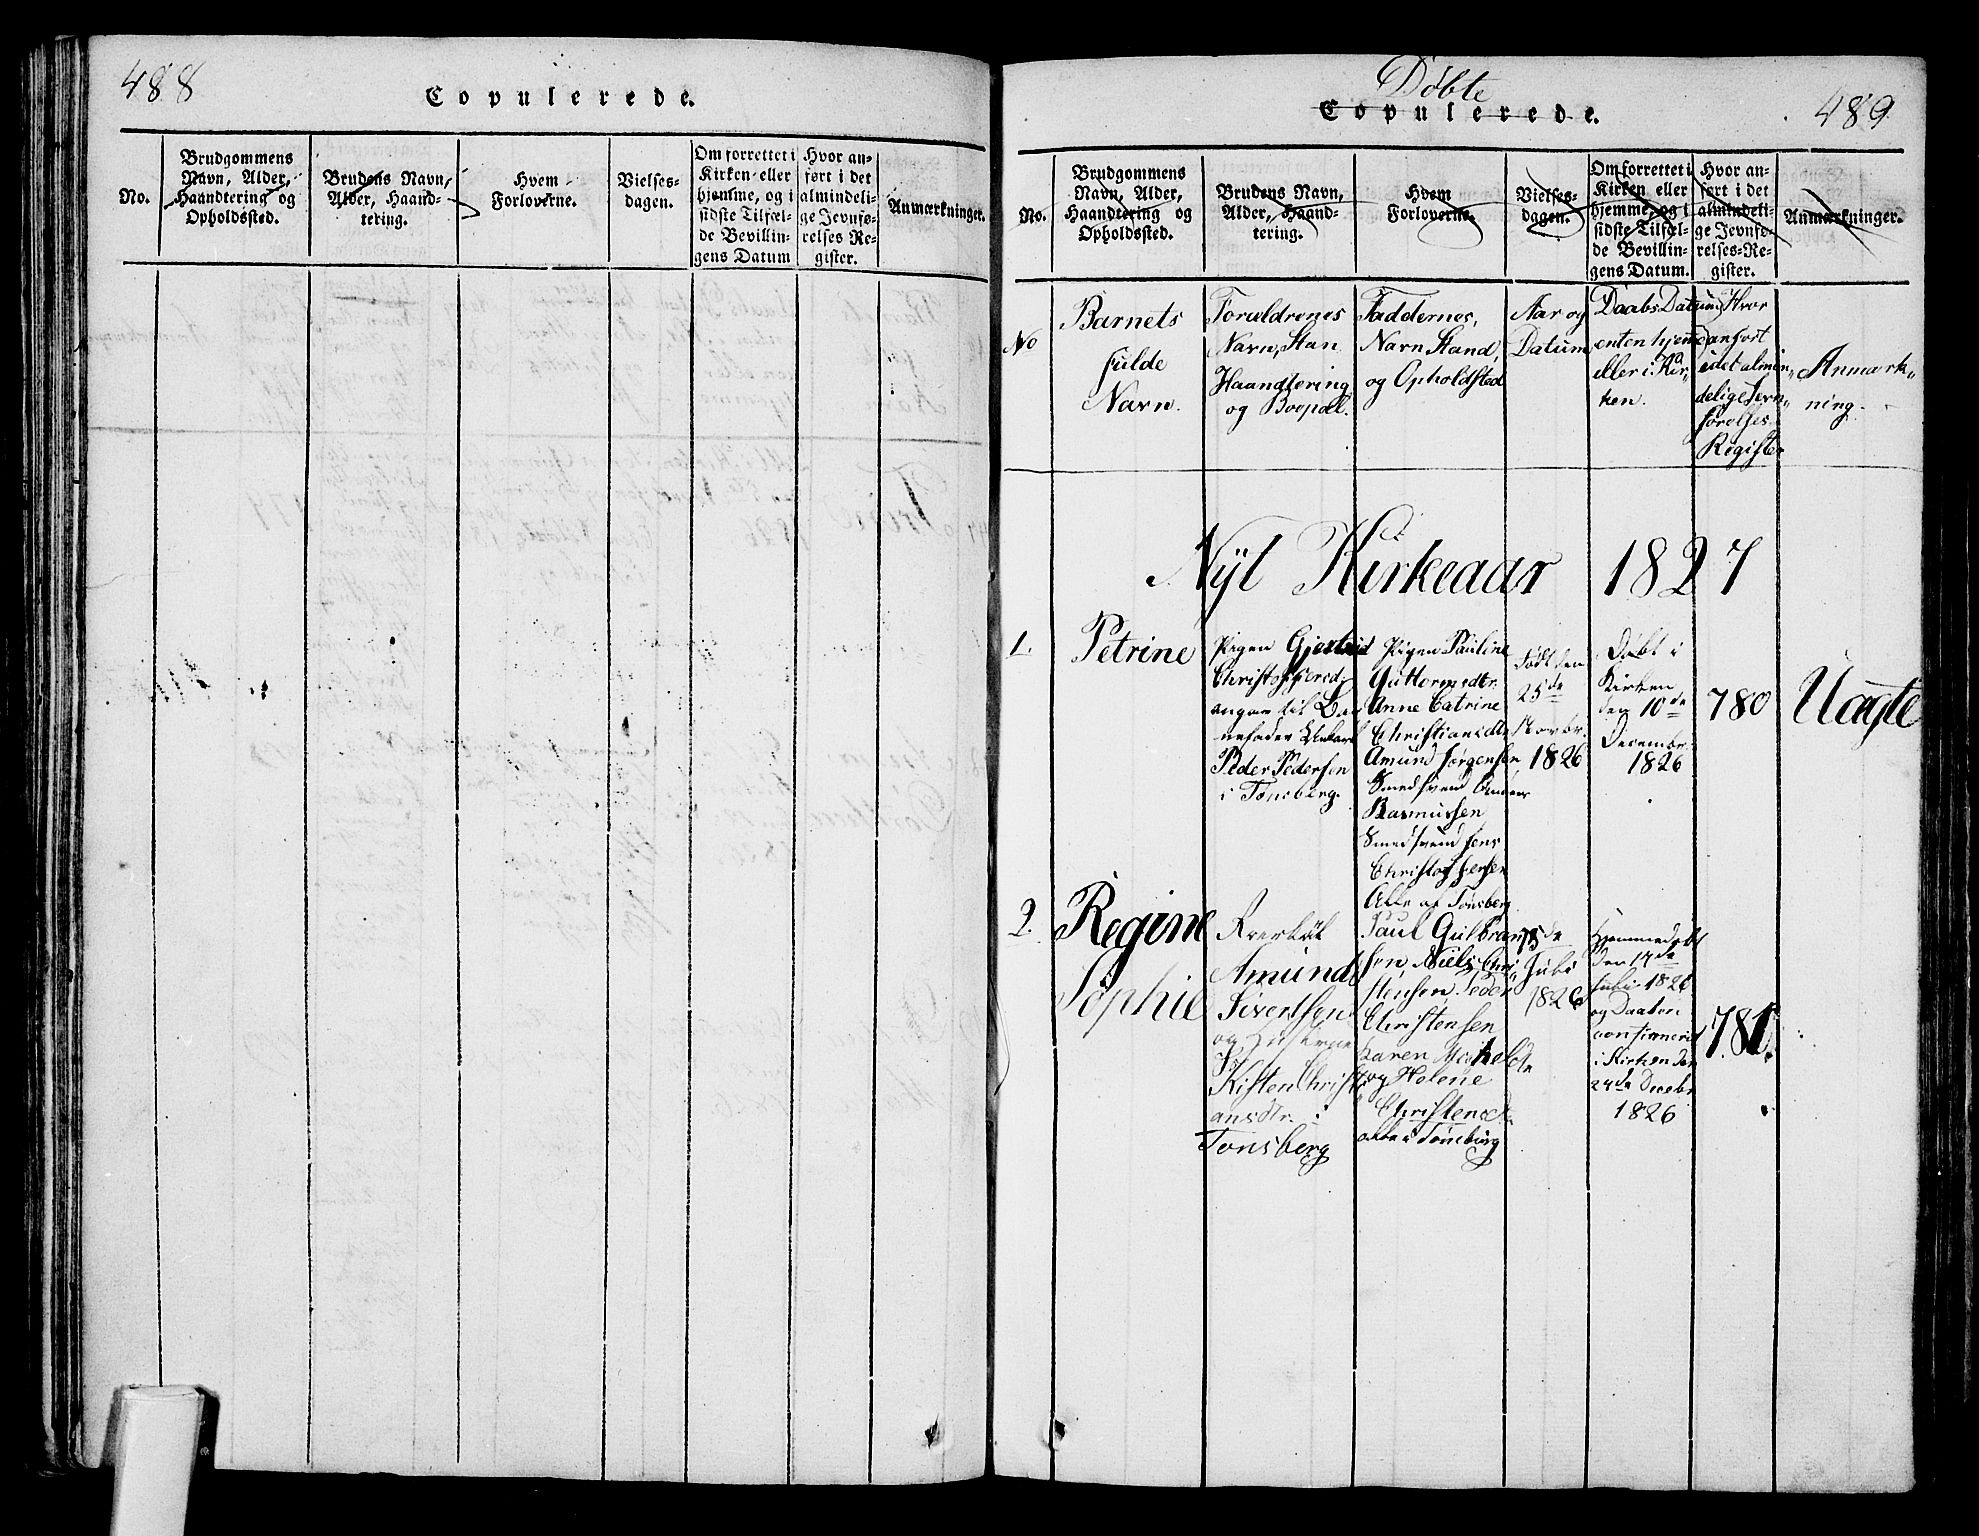 488
Copulerede.
No.
Brudgommens
Navn, Alder,
Haandtering og
Opholdssted.
Brudens Navn,
Alder, Haand-
tering.
Hvem
Forloverne.
Vielses-
dagen.
Om forrettet i
Kirken eller
hjemme, og i
sidste Tilfæl-
de Bevillin-
gens Datum
Hvor an-
ført i det
almindeli-
ge Jevnfø-
relses Re-
gister.
Anmærkninger.
Døbte
Copulerede.
489
No.
Brudgommens
Navn, Alder,
Haandtering og
Opholdssted.
Brudens Navn,
Alder, Haand-
tering.
Hvem
Forloverne.
Vielses-
dagen.
Om forrettet i
Kirken eller
hjemme, og i
sidste Tilfæl-
de Bevillin-
gens Datum.
Hvor an-
ført i det
almindeli-
ge Jevnfø-
relses-Re-
gister.
Anmærkninger.
No
Barnets
fulde
Navn.
Foruldrenes
Navn, Stan
Haandtering
og Boepæl.
Faddernes,
Navn Stand,
og Opholdsted
Aar og
Datum
Daabs Datum
enten hjeme
eller i Kir„
ken.
Hvor
anført
i det almin„
delige Jevn„
førelses
Register
Anmærk„
ning.
Nyt Kirkeaar 1827
1.
Petrine
Pigen Gjertrud
Christoffersd
angav til Bar
nefader
Peder Pedersen
i Tønsberg.
Pigen Pauline
Guttormsdtr
Anne Catrine
Christiansdtr
Amund Jørgensen
Smedsvend
Rasmussen
Smedsvend Jens
Christoffersen
Alle af Tønsberg
Født den
25de
Novbr.
1826
Døbt i
Kirken
den 10de
Decembr
1826
780
Uægte
2.
Regine
Sophie
Amund
Sivertsen
og Hustrue
Kisten Christi
ansdtr. i
Tonsberg
Paul Gulbran
sen Niels Chri„
stensen Peder
Christensen
Karen Michelsdtr
og Helene
Christensd.
alle i Tønsberg
Juli
1826
Hjemmedøbt
den 17de
Juli 1826
og Daaben
confirmeret
i Kirken den
24de Decebr
1826
781.